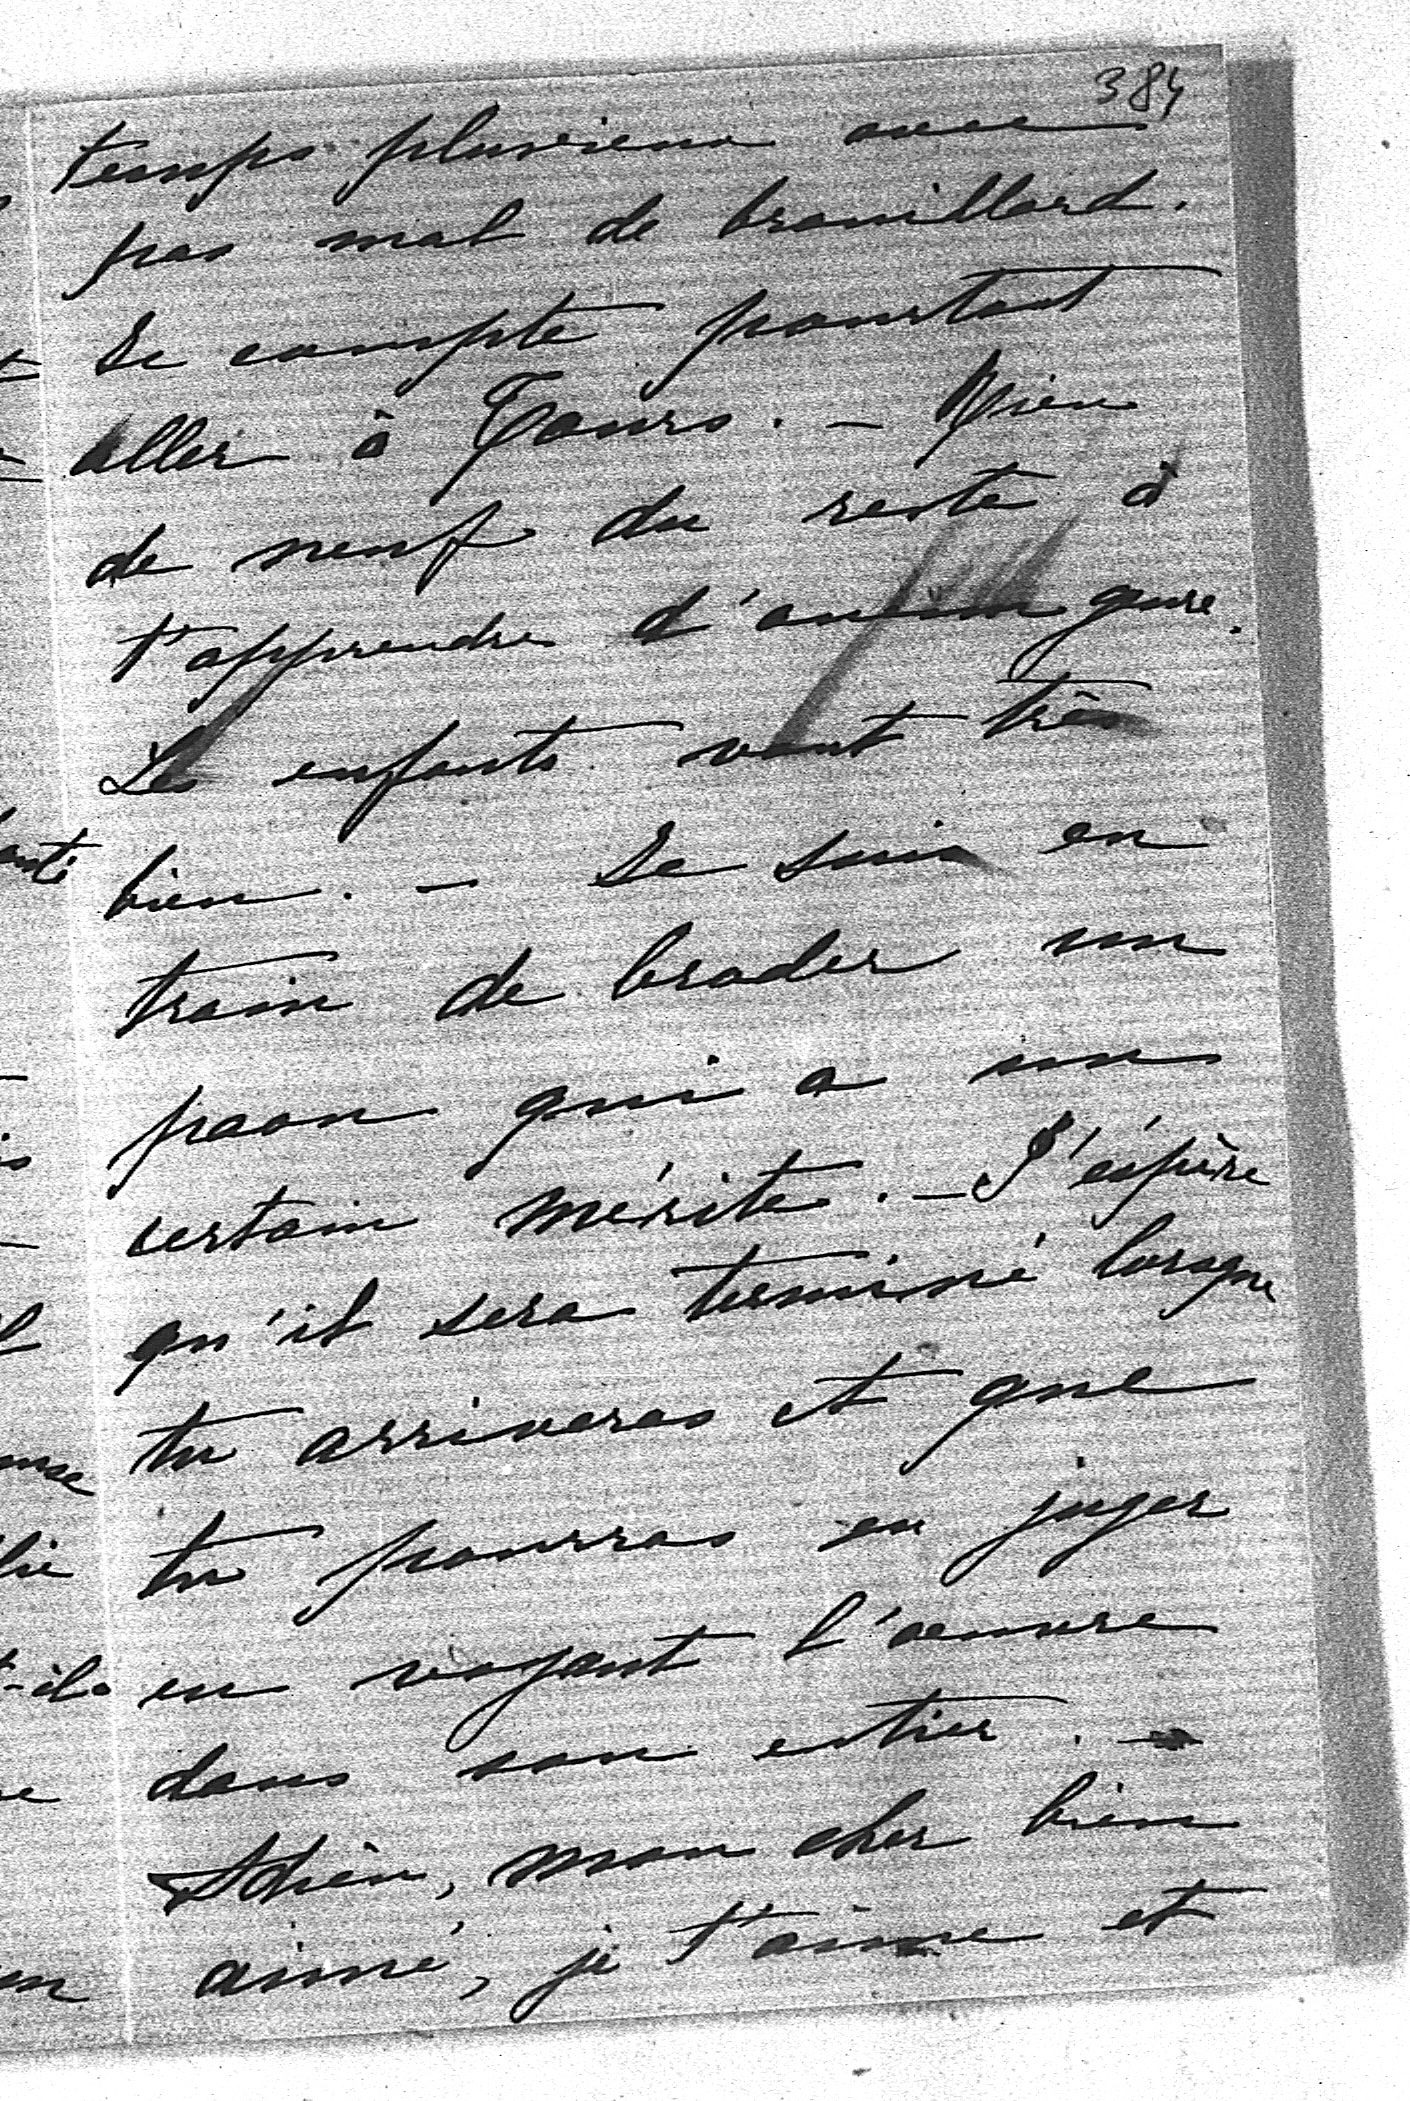 384
temps pluvieux avec
pas mal de brouillard.
Je compte pourtant
aller à Tours. - Rien
de neuf du reste à
t'apprendre d'aucun genre.
Les enfants vont très
bien. - Je suis en
train de broder un
paon qui a un
certain mérite. - J'espère
qu'il sera terminé lorsque
tu arriveras et que
tu pourras en juger
en voyant l'oeuvre
dans son entier. -
Adieu, mon cher bien
aimé, je t'aime et